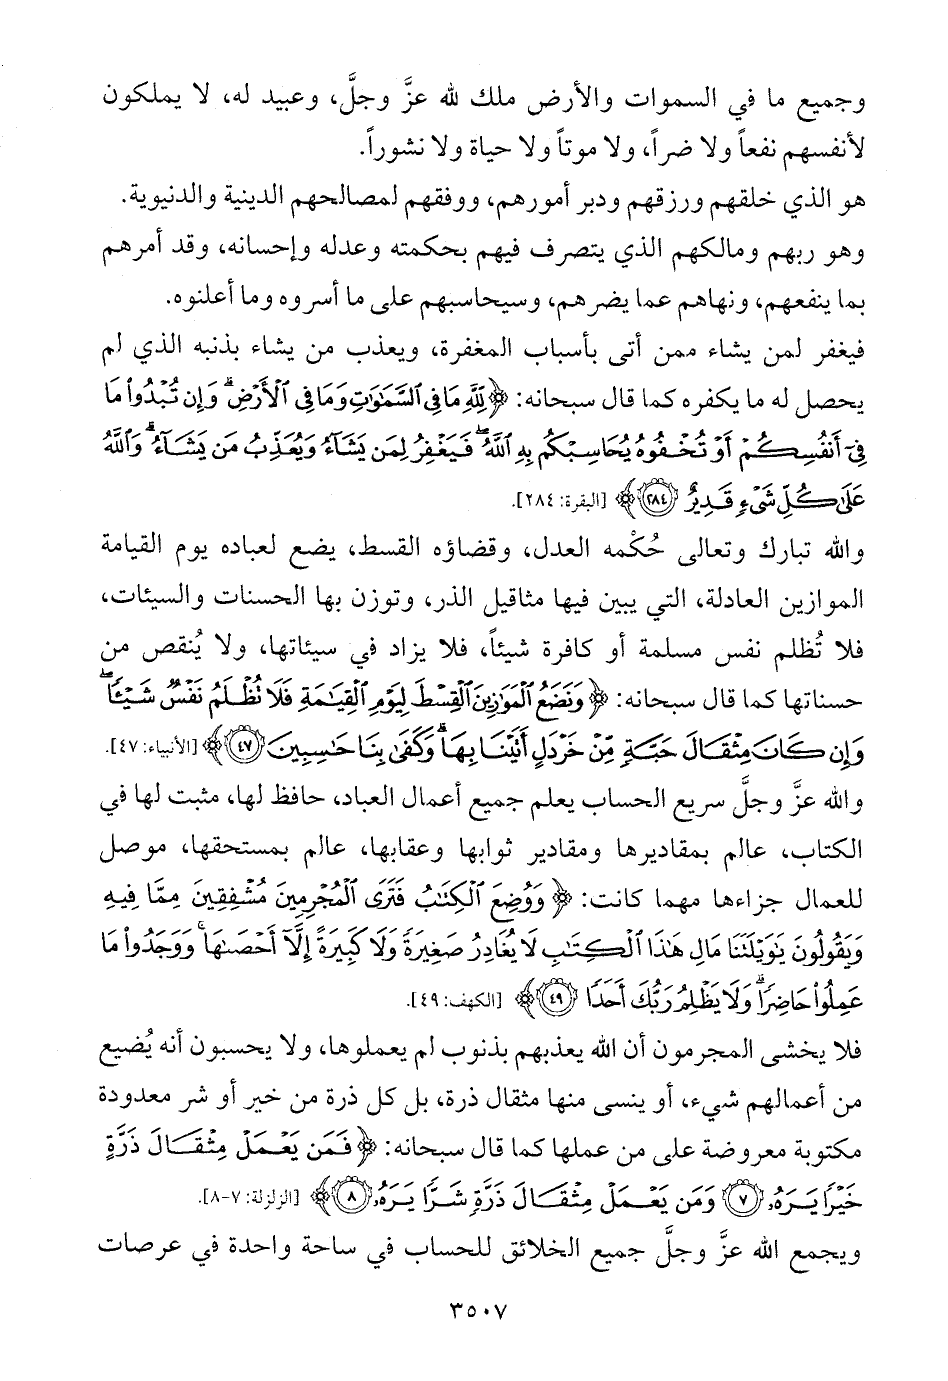 وجميع ما في السموات والأرض ملك لله عزَّ وجلَّ، وعبيد له، لا يملكون
لأنفسهم نفعاً ولا ضراً، ولا موتاً ولا حياة ولا نشوراً.
هو الذي خلقهم ورزقهم ودبر أمورهم، ووفقهم لمصالحهم الدينية والدنيوية.
وهو ربهم ومالكهم الذي يتصرف فيهم بحكمته وعدله وإحسانه، وقد أمرهم
بما ينفعهم، ونهاهم عما يضرهم، وسيحاسبهم على ما أسروه وما أعلنوه.
فيغفر لمن يشاء ممن أتى بأسباب المغفرة، ويعذب من يشاء بذنبه الذي لم
يحصل له ما يكفره كما قال سبحانه: ﴿لِّلَّهِ مَا فِي ٱلسَّمَٰوَٰتِ وَمَا فِي ٱلۡأَرۡضِۗ وَإِن تُبۡدُواْ مَا
فِيٓ أَنفُسِكُمۡ أَوۡ تُخۡفُوهُ يُحَاسِبۡكُم بِهِ ٱللَّهُۖ فَيَغۡفِرُ لِمَن يَشَآءُ وَيُعَذِّبُ مَن يَشَآءُۗ وَٱللَّهُ
عَلَىٰ كُلِّ شَيۡءٖ قَدِيرٌ ﴿٢٨٤﴾﴾ [البقرة: ٢٨٤].
والله تبارك وتعالى حُكْمه العدل، وقضاؤه القسط، يضع لعباده يوم القيامة
الموازين العادلة، التي يبين فيها مثاقيل الذر، وتوزن بها الحسنات والسيئات،
فلا تُظلم نفس مسلمة أو كافرة شيئاً، فلا يزاد في سيئاتها، ولا يُنقص من
حسناتها كما قال سبحانه: ﴿وَنَضَعُ ٱلۡمَوَٰزِينَ ٱلۡقِسۡطَ لِيَوۡمِ ٱلۡقِيَٰمَةِ فَلَا تُظۡلَمُ نَفۡسٞ شَيۡـٔٗاۖ
وَإِن كَانَ مِثۡقَالَ حَبَّةٖ مِّنۡ خَرۡدَلٍ أَتَيۡنَا بِهَاۗ وَكَفَىٰ بِنَا حَٰسِبِينَ ﴿٤٧﴾﴾ [الأنبياء: ٤٧].
والله عزَّ وجلَّ سريع الحساب يعلم جميع أعمال العباد، حافظ لها، مثبت لها في
الكتاب، عالم بمقاديرها ومقادير ثوابها وعقابها، عالم بمستحقها، موصل
للعمال جزاءها مهما كانت: ﴿وَوُضِعَ ٱلۡكِتَٰبُ فَتَرَى ٱلۡمُجۡرِمِينَ مُشۡفِقِينَ مِمَّا فِيهِ
وَيَقُولُونَ يَٰوَيۡلَتَنَا مَالِ هَٰذَا ٱلۡكِتَٰبِ لَا يُغَادِرُ صَغِيرَةٗ وَلَا كَبِيرَةً إِلَّآ أَحۡصَىٰهَاۚ وَوَجَدُواْ مَا
عَمِلُواْ حَاضِرٗاۗ وَلَا يَظۡلِمُ رَبُّكَ أَحَدٗا ﴿٤٩﴾﴾ [الكهف: ٤٩].
فلا يخشى المجرمون أن الله يعذبهم بذنوب لم يعملوها، ولا يحسبون أنه يُضيع
من أعمالهم شيء، أو ينسى منها مثقال ذرة، بل كل ذرة من خير أو شر معدودة
مكتوبة معروضة على من عملها كما قال سبحانه: ﴿فَمَن يَعۡمَلۡ مِثۡقَالَ ذَرَّةٍ
خَيۡرٗا يَرَهُۥ ﴿٧﴾ وَمَن يَعۡمَلۡ مِثۡقَالَ ذَرَّةٖ شَرّٗا يَرَهُۥ ﴿٨﴾﴾ [الزلزلة: ٧-٨].
ويجمع الله عزَّ وجلَّ جميع الخلائق للحساب في ساحة واحدة في عرصات
٣٥٠٧